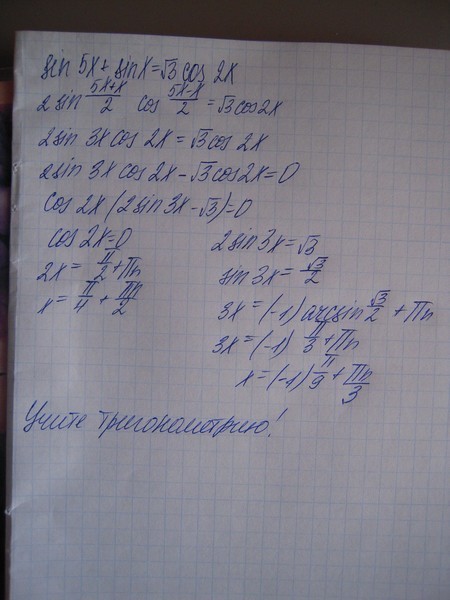 sin 5x + sin x = √3 cos 2x
2 sin (5x+x)/2 cos (5x-x)/2 = √3 cos 2x
2 sin 3x cos 2x = √3 cos 2x
2 sin 3x cos 2x - √3 cos 2x = 0
cos 2x (2 sin 3x - √3) = 0
cos 2x = 0
2x = π/2 + πn
x = π/4 + πn/2
2 sin 3x = √3
sin 3x = √3/2
3x = (-1) arcsin √3/2 + πn
3x = (-1) π/3 + πn
x = (-1) π/9 + πn/3
Учите тригонометрию!